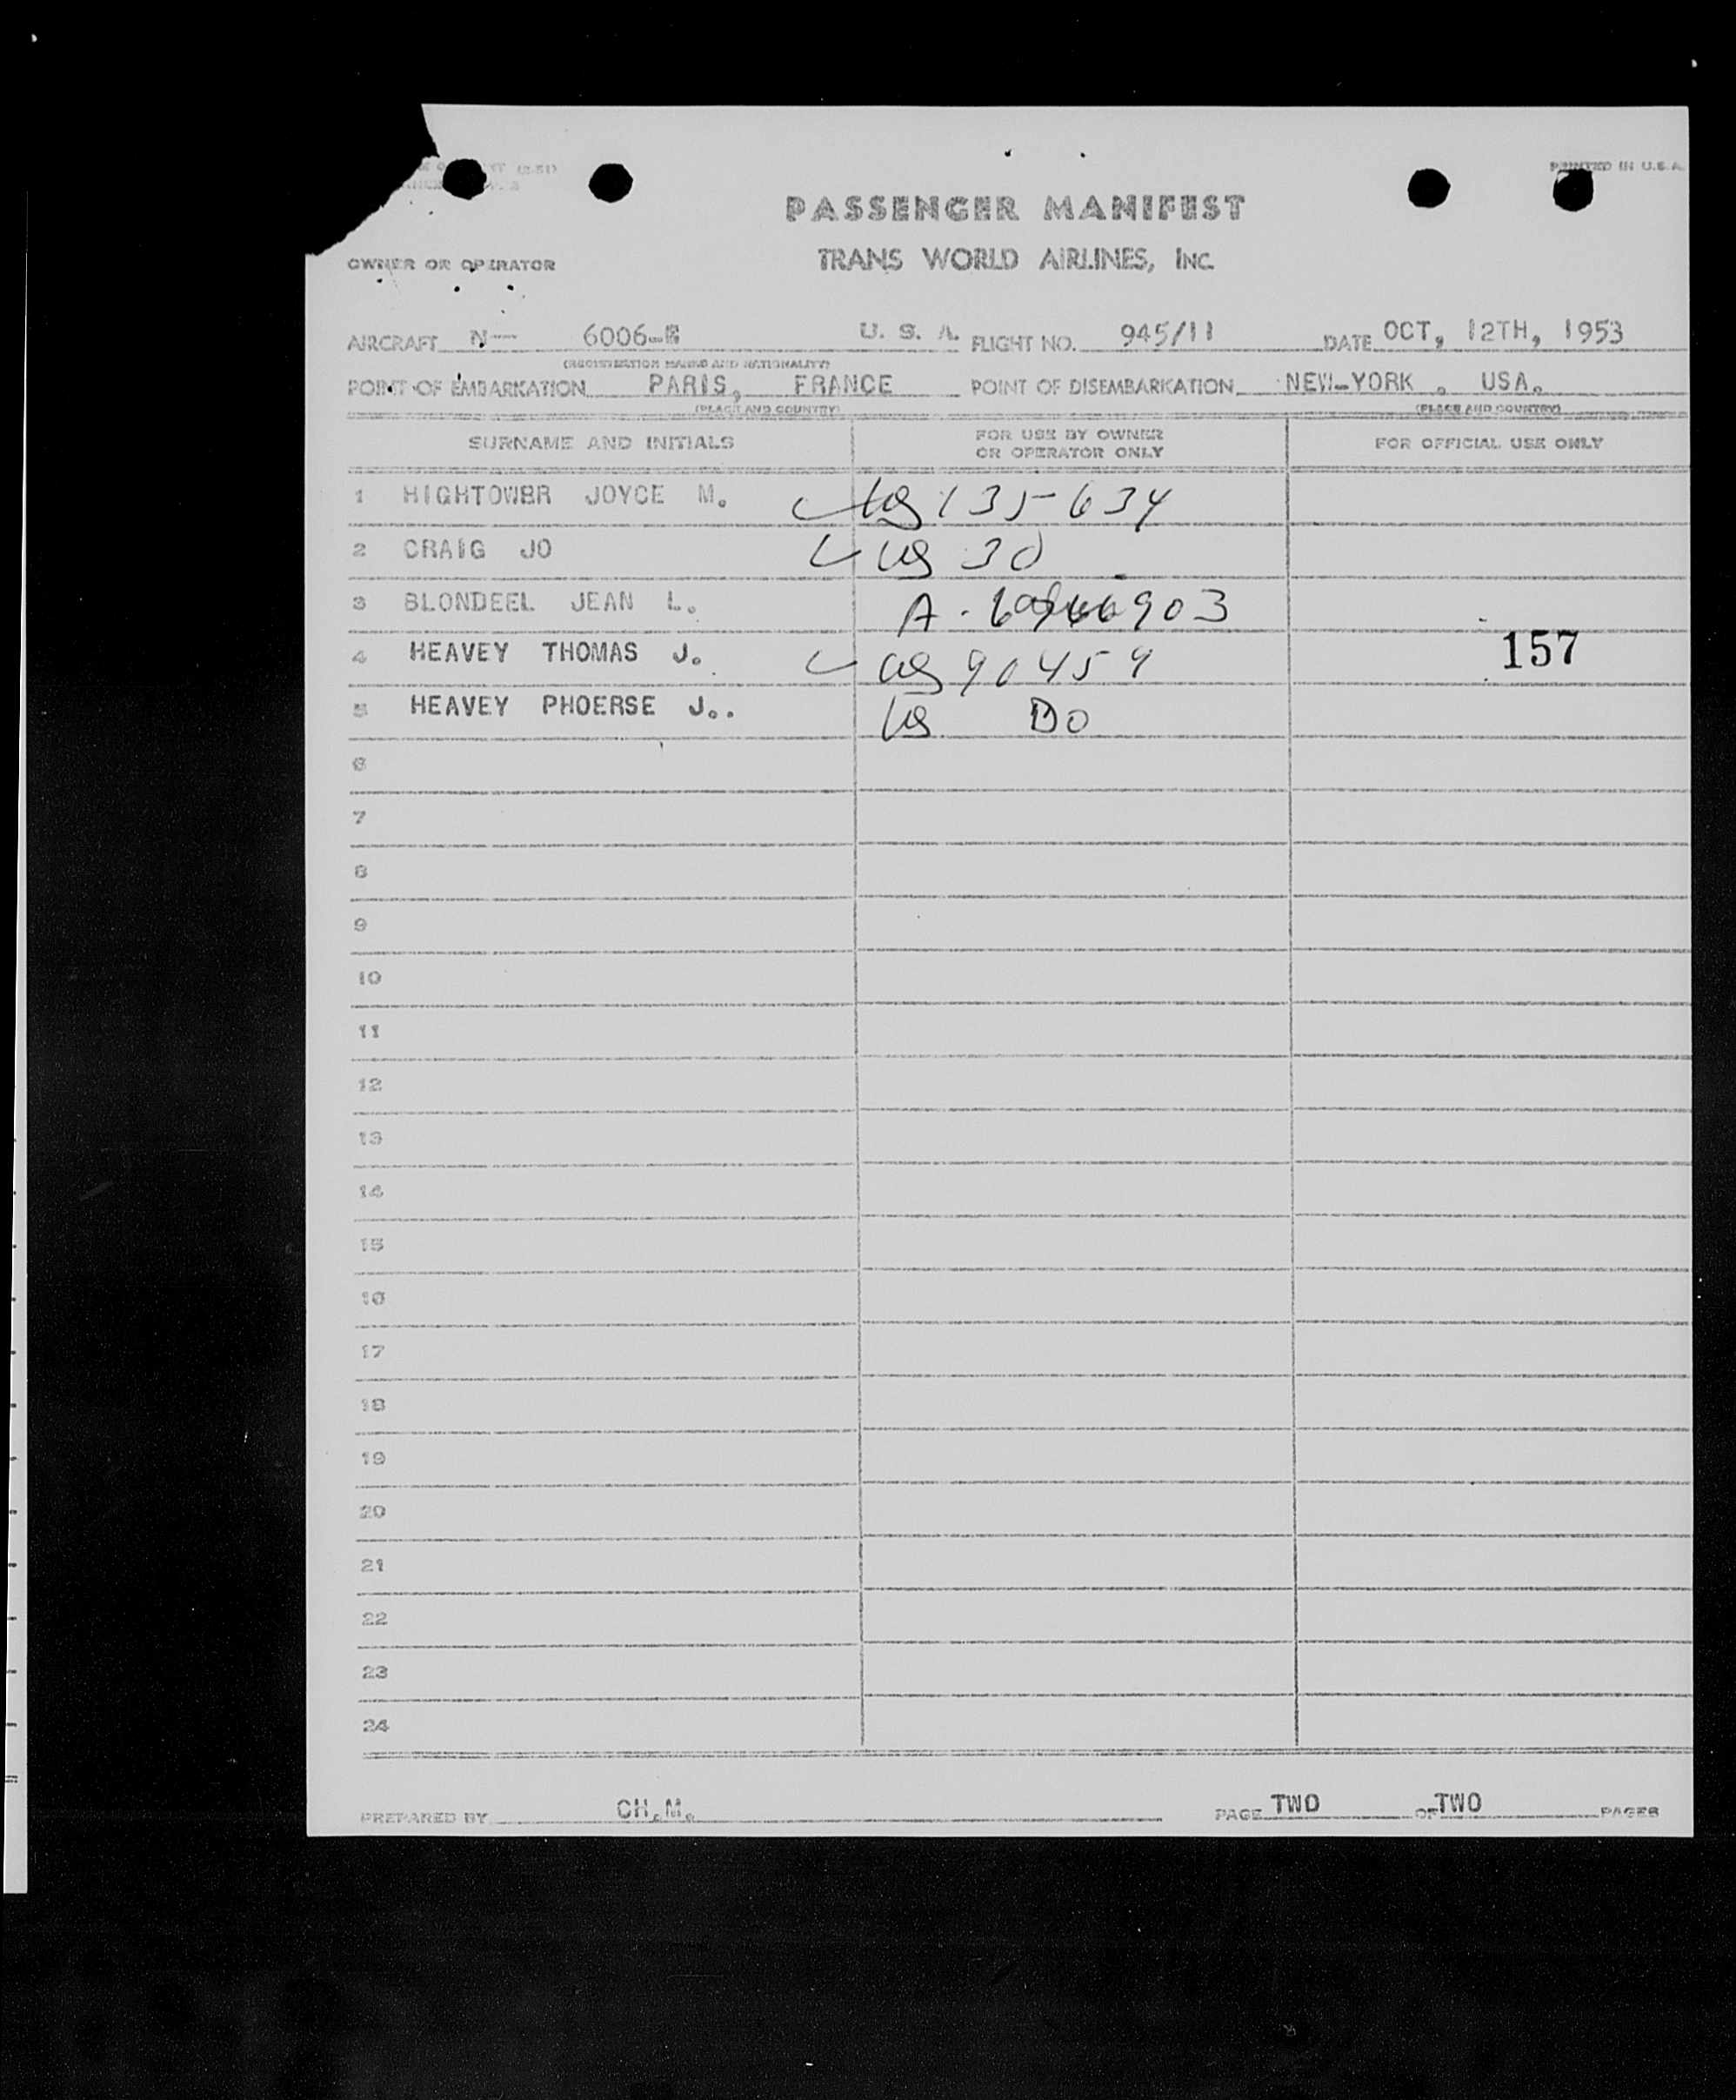 PRINTED IN U.S.A.
PASSENGER MANIFEST
TRANS WORLD AIRLINES, INC.
OWNER OR OPERATOR
AIRCRAFT N— 6006-E U. S. A. FLIGHT NO. 945/11 DATE OCT, 12TH, 1953
(REGISTRATION MARKS AND NATIONALITY)
POINT OF EMBARKATION PARIS, FRANCE POINT OF DISEMBARKATION NEW-YORK . USA.
(PLACE AND COUNTRY) (PLACE AND COUNTRY)
SURNAME AND INITIALS FOR USE BY OWNER OR OPERATOR ONLY FOR OFFICIAL USE ONLY
1 HIGHTOWER JOYCE M. US 135-634
2 CRAIG JO US 30
3 BLONDEEL JEAN L. A-
4 HEAVEY THOMAS J. US 90459 157
5 HEAVEY PHOERSE J.. US DO
6
7
8
9
10
11
12
13
14
15
16
17
18
19
20
21
22
23
24
PREPARED BY CH.M. PAGE TWO OF TWO PAGES